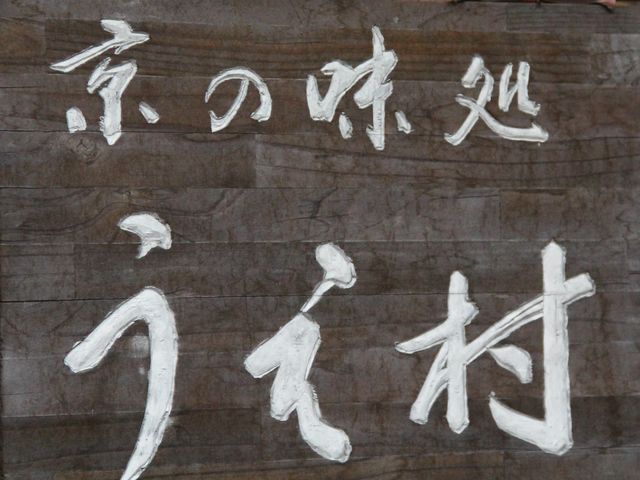 京の味処
うえ村